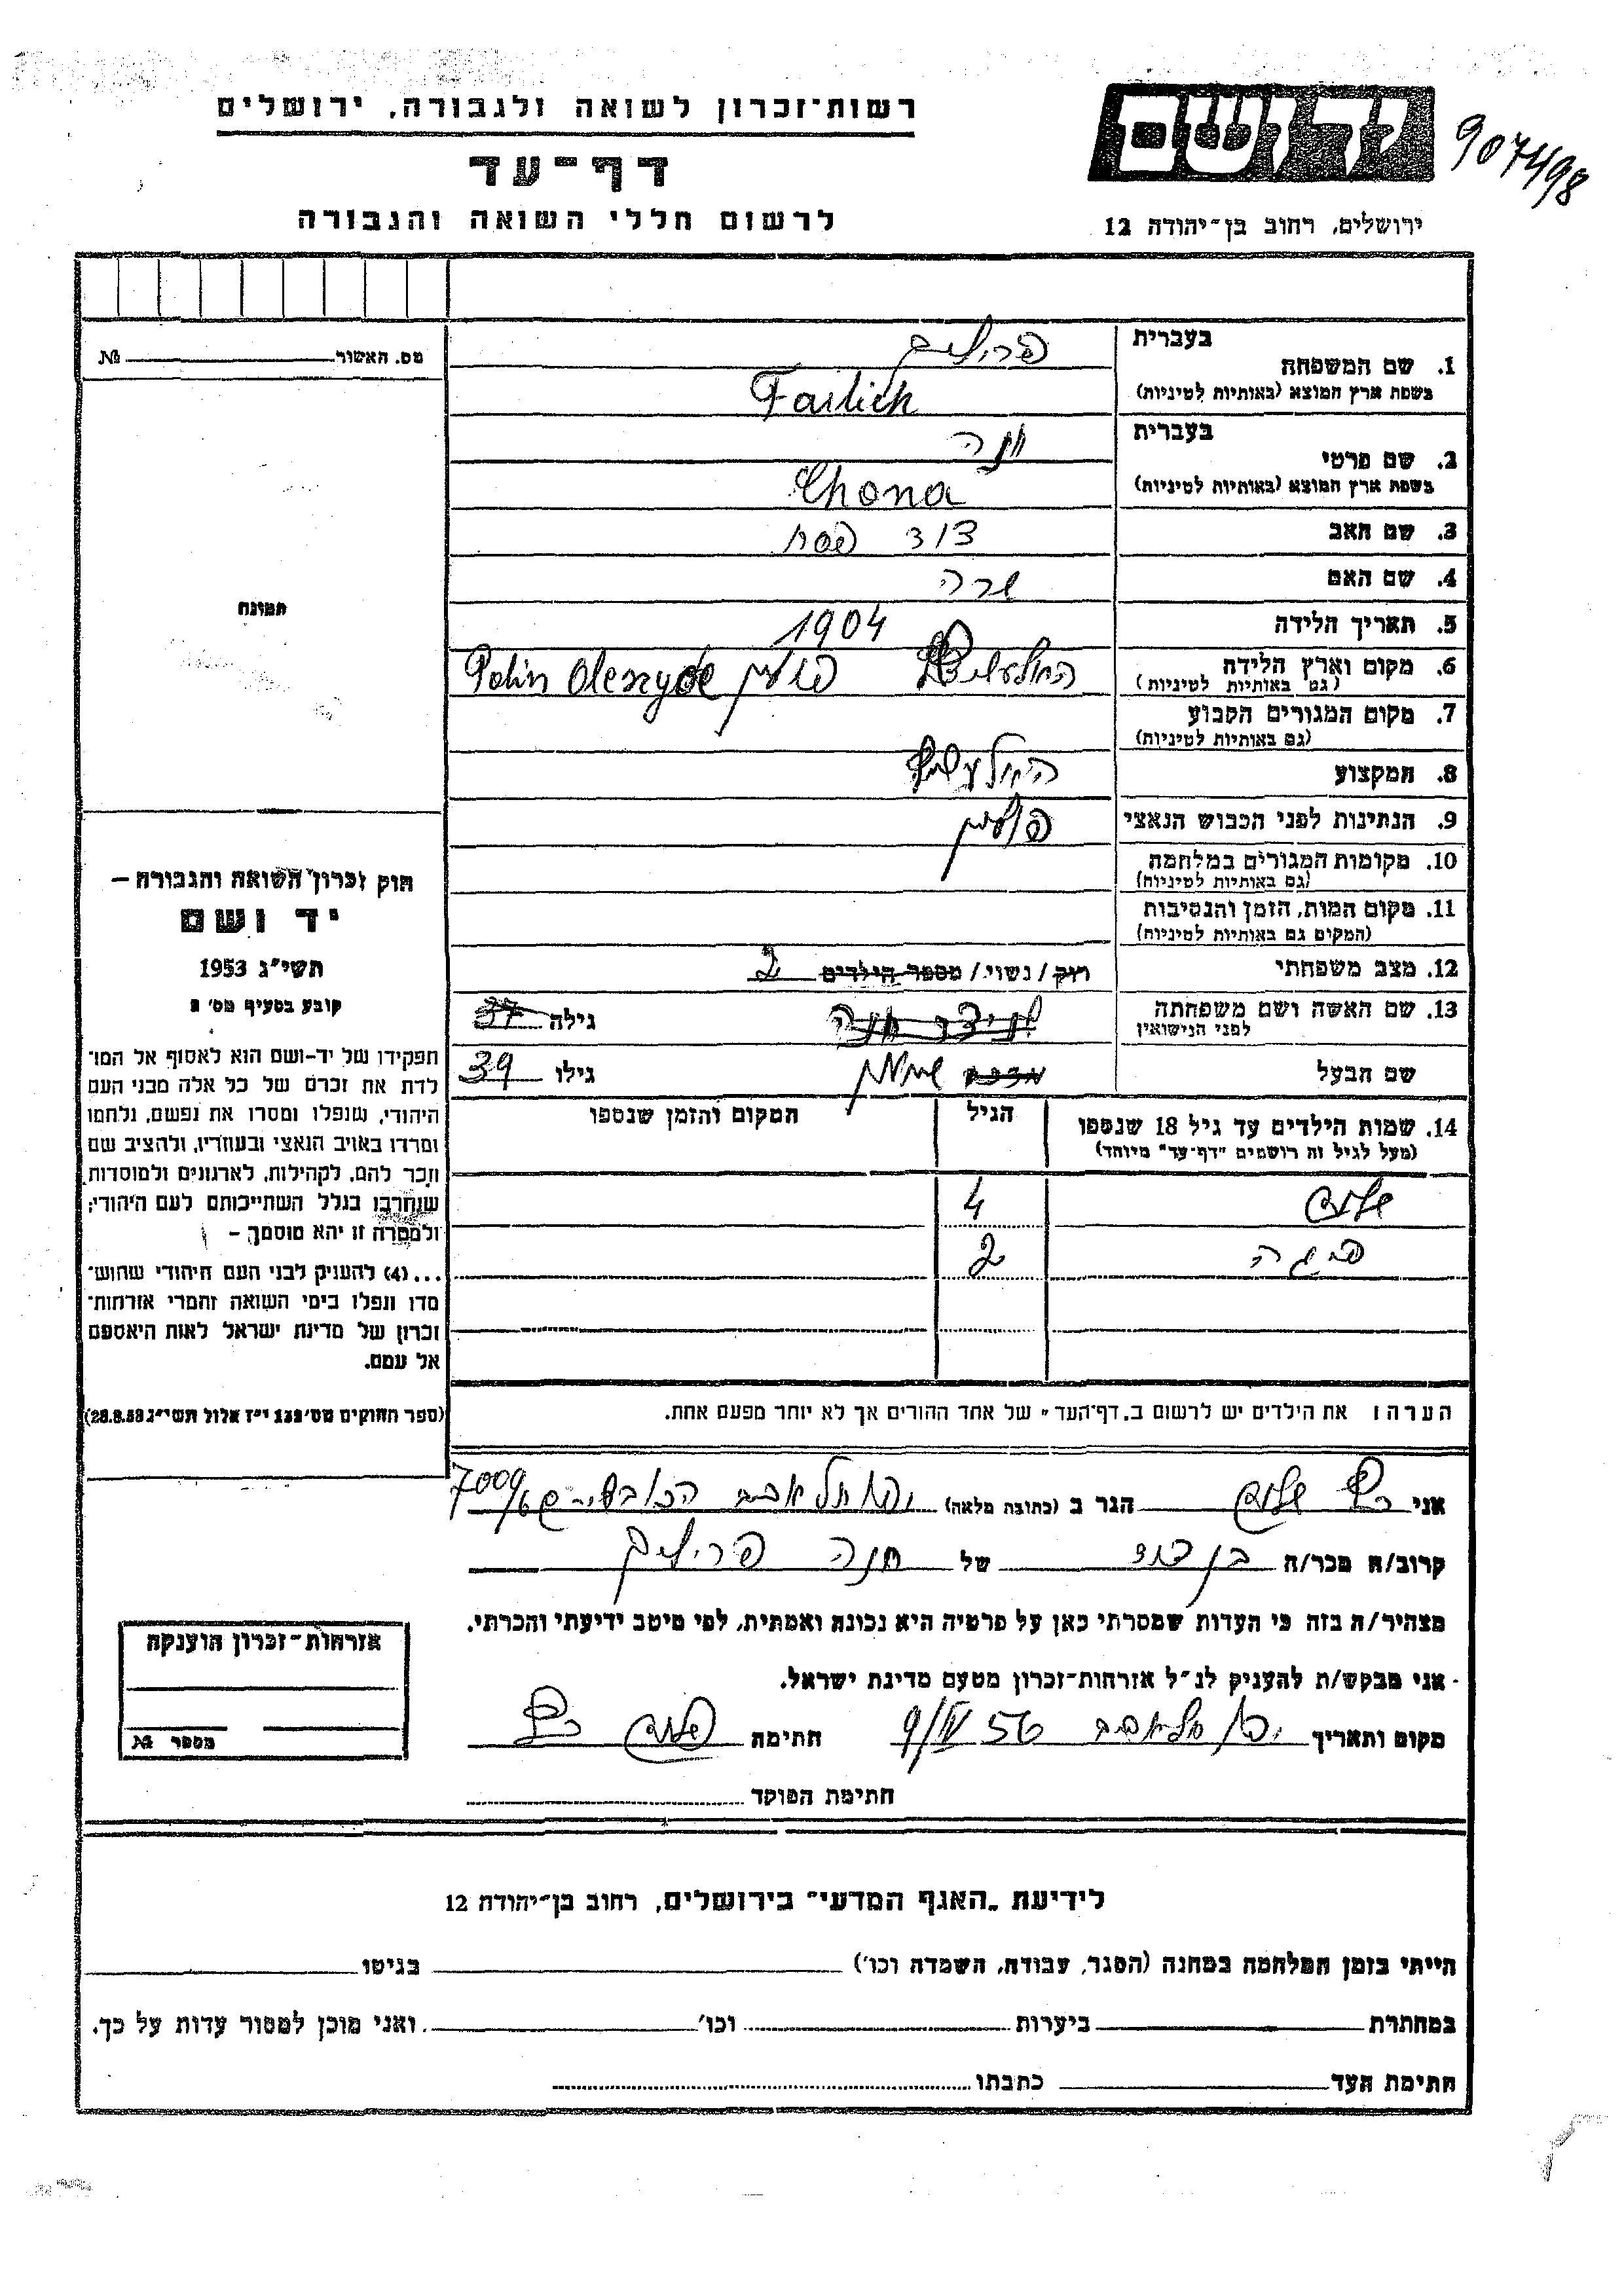 רשות־זכרון לשואה ולגבורה, ירושלים
דף־עד
לרשום חללי השואה והגבורה
יד ושם
907498
ירושלים, רחוב בן־יהודה 12
מס. האשור № 
תמונה
בעברית
1. שם המשפחה
בשפת ארץ המוצא (באותיות לטיניות)
Farlich
בעברית
2. שם פרטי
בשפת ארץ המוצא (באותיות לטיניות)
חנה
Chona
3. שם האב דוד פסח
4. שם האם שרה
5. תאריך הלידה 1904
6. מקום וארץ הלידה
(גם באותיות לטיניות)
פולין Polin
7. מקום המגורים הקבוע
(גם באותיות לטיניות)
8. המקצוע
9. הנתינות לפני הכבוש הנאצי פולין
10. מקומות המגורים במלחמה
(גם באותיות לטיניות)
11. מקום המות, הזמן והנסיבות
(המקום גם באותיות לטיניות)
12. מצב משפחתי רווק / נשוי / מספר הילדים 2
13. שם האשה ושם משפחתה
לפני הנישואין
גילה 37
שם הבעל גילו 39
14. שמות הילדים עד גיל 18 שנספו הגיל המקום והזמן שנספו
(מעל לגיל זה רושמים "דף־עד" מיוחד)
שלום 4
פיגה 2
הערה: את הילדים יש לרשום ב„דף־העד" של אחד ההורים אך לא יותר מפעם אחת.
חוק זכרון השואה והגבורה –
יד ושם
תשי"ג 1953
קובע בסעיף מס' 2
תפקידו של יד־ושם הוא לאסוף אל המו־
לדת את זכרם של כל אלה מבני העם
היהודי, שנפלו ומסרו את נפשם, נלחמו
ומרדו באויב הנאצי ובעוזריו, ולהציב שם
וזכר להם, לקהילות, לארגונים ולמוסדות
שנחרבו בגלל השתייכותם לעם היהודי;
ולמטרה זו יהא מוסמך –
...(4) להעניק לבני העם היהודי שהוש־
מדו ונפלו בימי השואה והמרי אזרחות־
זכרון של מדינת ישראל לאות היאספם
אל עמם.
(ספר החוקים מס' 132 י"ז אלול תשי"ג 28.8.53)
אני שלום הגר ב (כתובת מלאה) תל אביב
קרוב/ה מכר/ה בן דוד של חנה פריליך
מצהיר/ה בזה כי העדות שמסרתי כאן על פרטיה היא נכונה ואמתית, לפי מיטב ידיעתי והכרתי.
אני מבקש/ת להעניק לנ"ל אזרחות־זכרון מטעם מדינת ישראל.
מקום ותאריך יפו תל אביב 9/IV 56 חתימה שלום
חתימת הפוקד
אזרחות־זכרון הוענקה
מספר №
לידיעת „האגף המדעי" בירושלים, רחוב בן־יהודה 12
הייתי בזמן המלחמה במחנה (הסגר, עבודה, השמדה וכו') בגיטו
במחתרת ביערות וכו' ואני מוכן למסור עדות על כך.
חתימת העד כתבתו